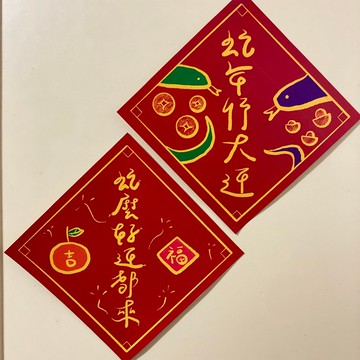 蛇年行大运
蛇麼好運都來
吉
福